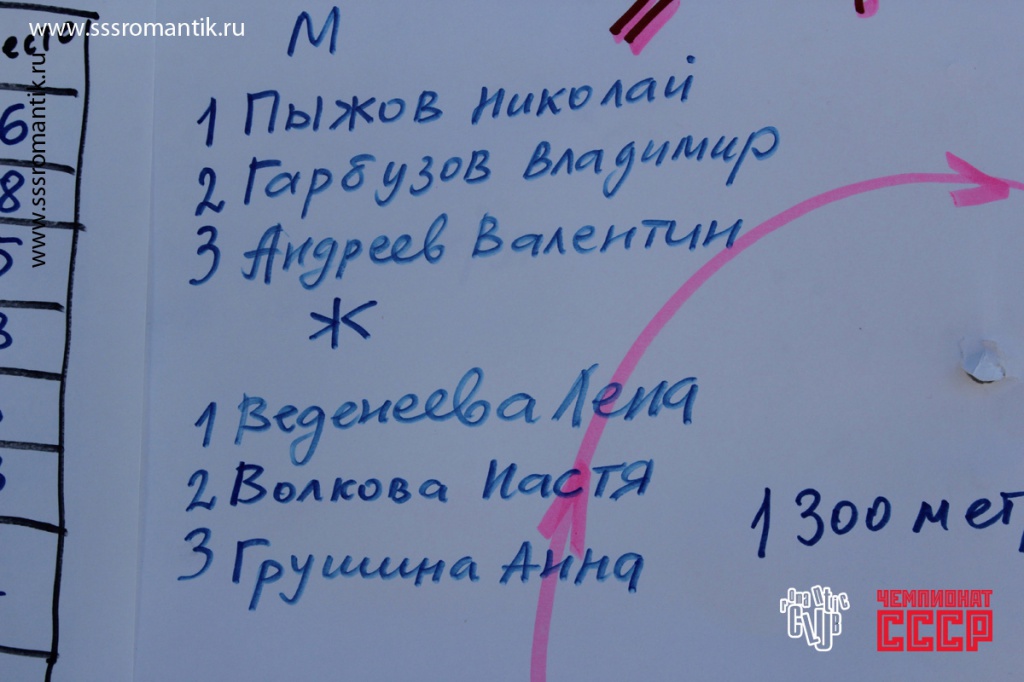 www.sssromantik.ru
www.sssromantik.ru
М
1 Пыжов Николай
2 Гарбузов Владимир
3 Андреев Валентин
Ж
1 Веденеева Лена
2 Волкова Настя
3 Грушина Анна
1300 мет
6
8
5
3
romantic
CLUB
ЧЕМПИОНАТ
СССР